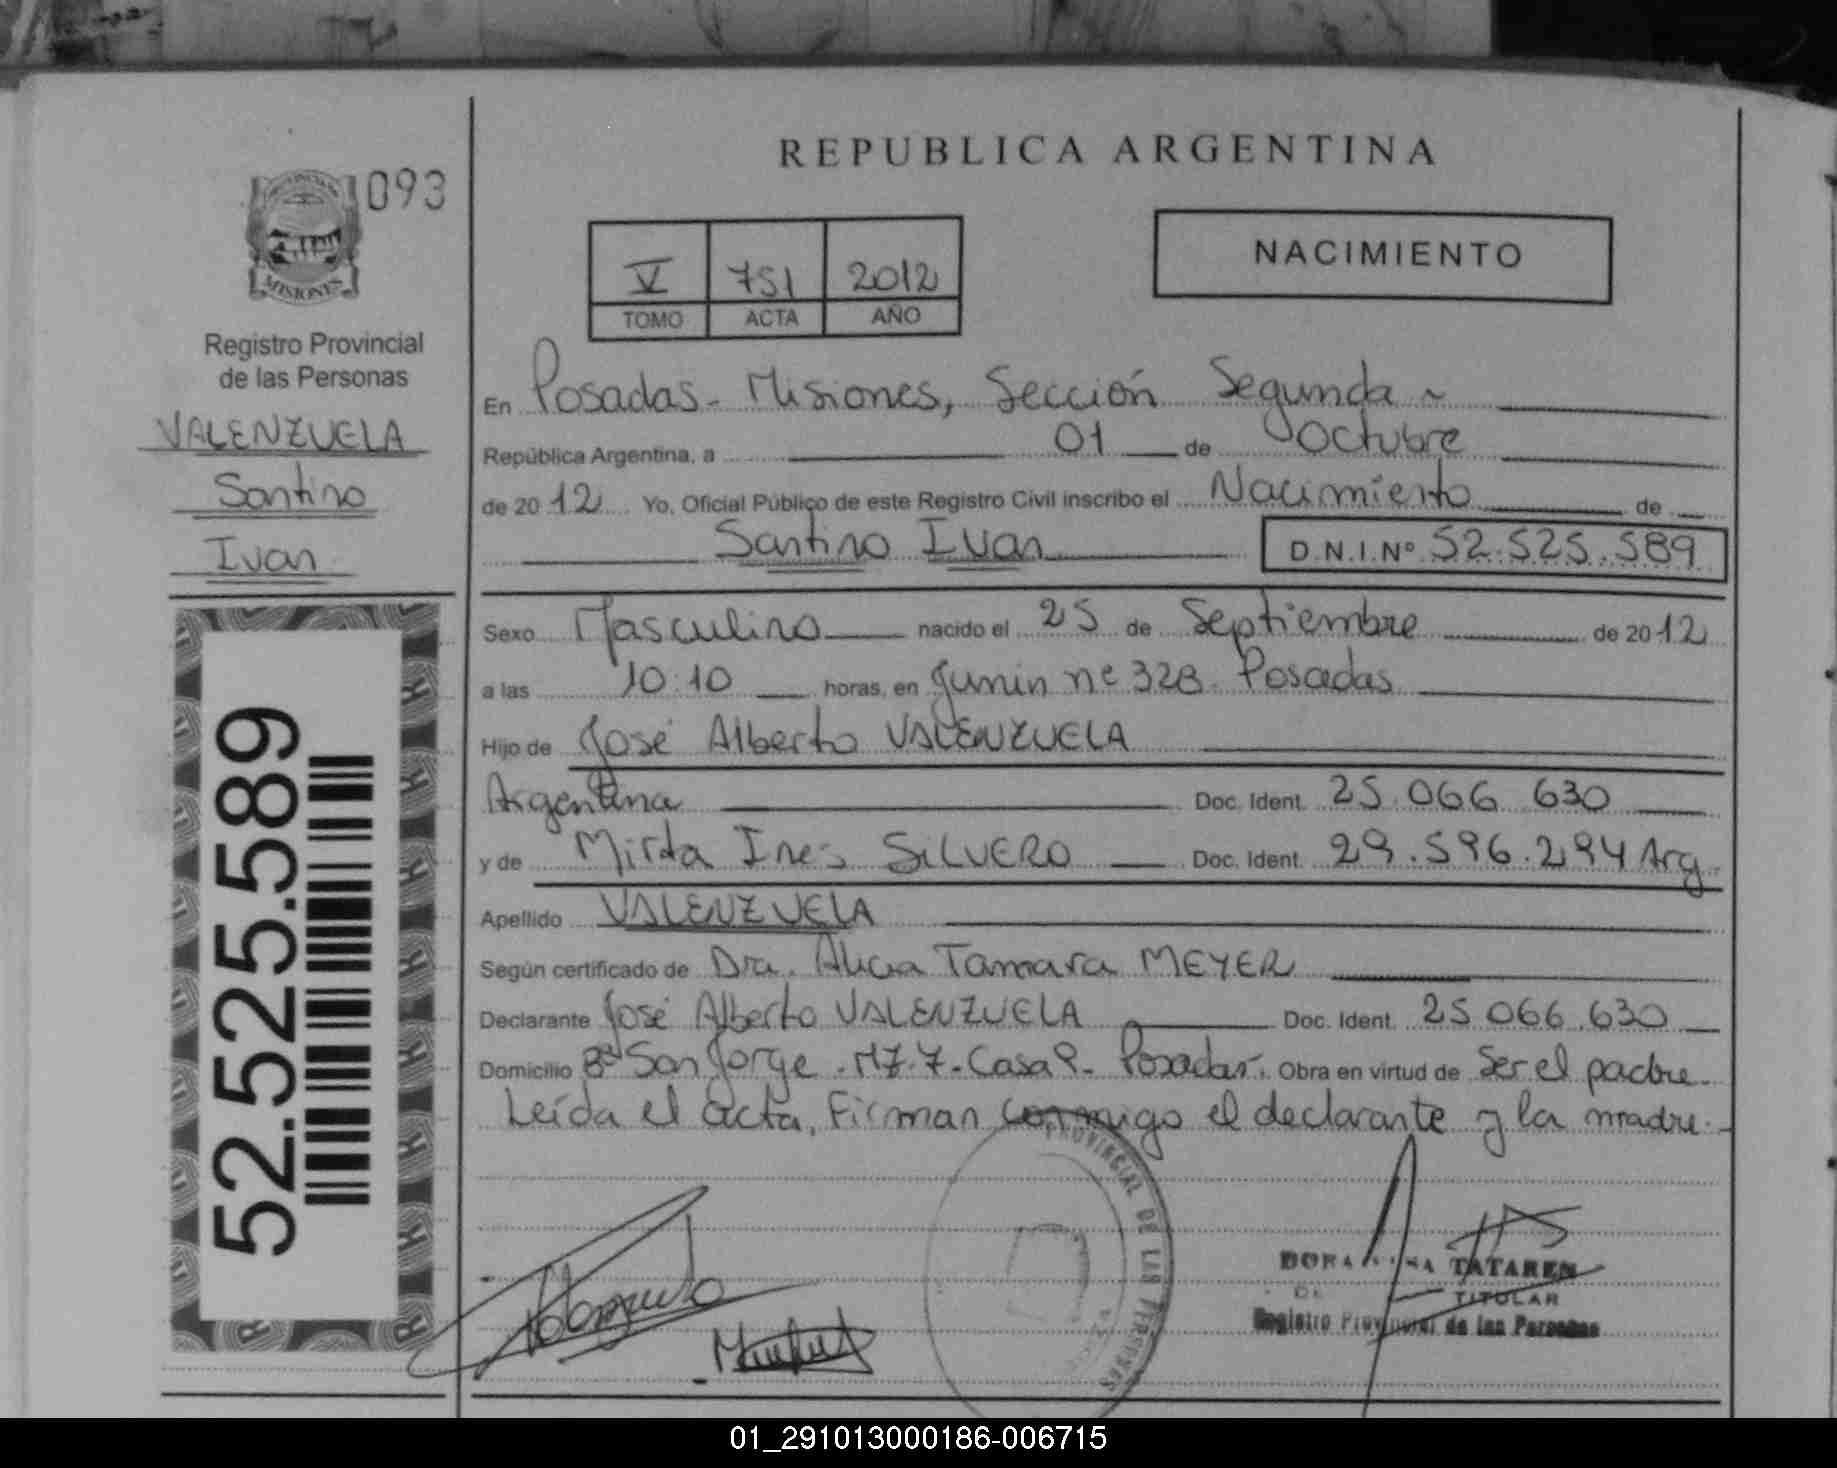 REPUBLICA ARGENTINA
093
PROVINCIA DE
MISIONES
Registro Provincial
de las Personas
VALENZUELA
Santino
Ivan
52.525.589
V 751 2012
TOMO ACTA AÑO
NACIMIENTO
En Posadas - Misiones, Sección Segunda
República Argentina, a 01 de Octubre
de 2012 Yo, Oficial Público de este Registro Civil inscribo el Nacimiento de
Santino Ivan D.N.I.Nº 52.525.589
Sexo Masculino nacido el 25 de Septiembre de 2012
a las 10:10 horas, en Junin nº 328. Posadas
Hijo de José Alberto VALENZUELA
Argentina Doc. Ident. 25.066 630
y de Mirta Ines SILVERO Doc. Ident. 29.596.294 Arg.
Apellido VALENZUELA
Según certificado de Dra. Alicia Tamara MEYER
Declarante José Alberto VALENZUELA Doc. Ident. 25 066.630
Domicilio Bº San Jorge - MZ. 7 - Casa - Posadas. Obra en virtud de ser el padre.
Leída el acta, Firman conmigo el declarante y la madre.-
PROVINCIAL DE LAS PERSONAS
TATAREN
TITULAR
Registro Provincial de las Personas
01_291013000186-006715